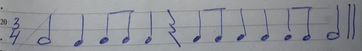 20. 3
4